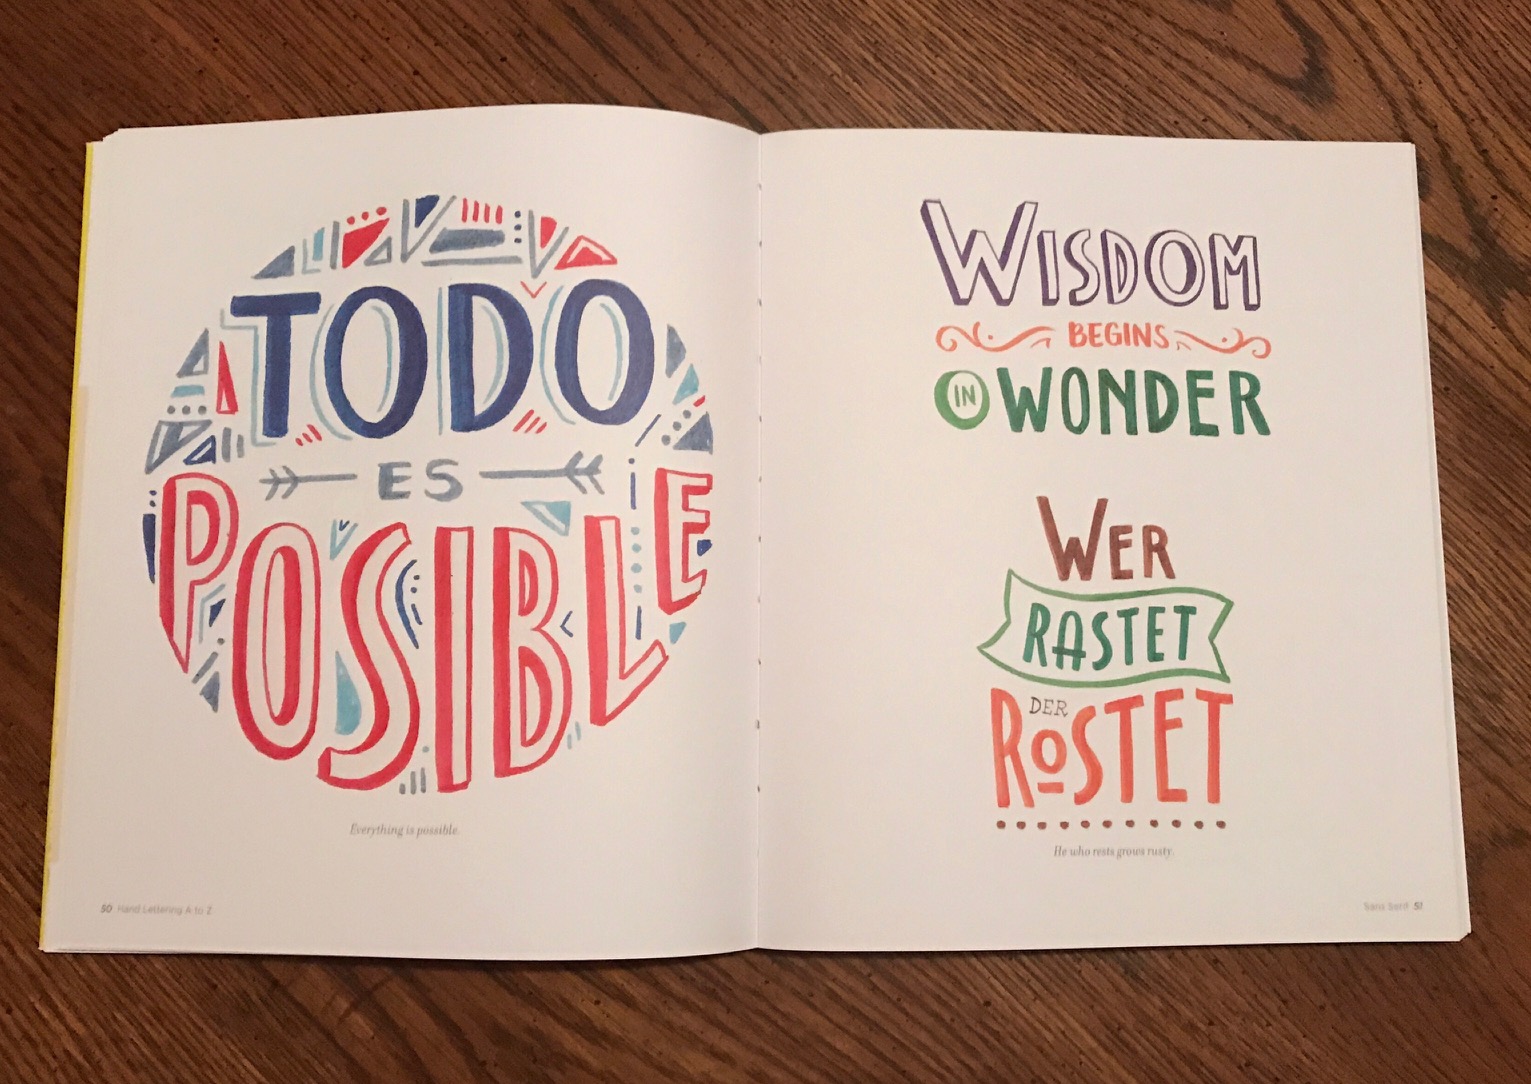 TODO
ES
POSIBLE
Everything is possible.
50 Hand Lettering A to Z
WISDOM
BEGINS
IN WONDER
WER
RASTET
DER
ROSTET
He who rests grows rusty.
Sans Serif 51